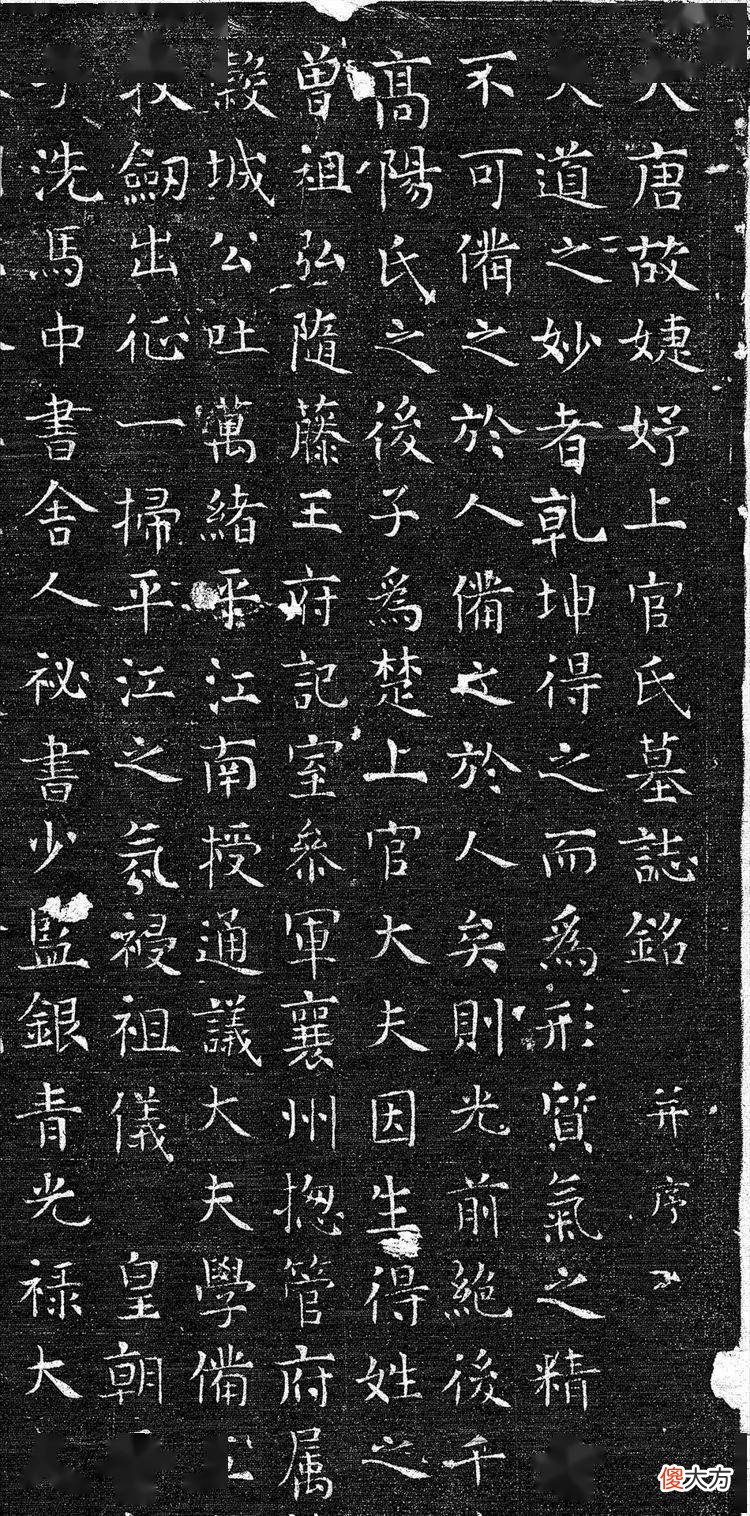 唐故婕妤上官氏墓誌銘 并序
道之妙者乾坤得之而為形質氣之精
不可備之於人備之於人矣則光前絕後千
高陽氏之後子為楚上官大夫因生得姓之
曾祖弘隨藤王府記室叅軍襄州揔管府属
縠城公吐萬緒平江南授通議大夫學備
杖劒出征一掃平江之氛祲祖儀 皇朝
洗馬中書舍人祕書少監銀青光祿大
傻大方